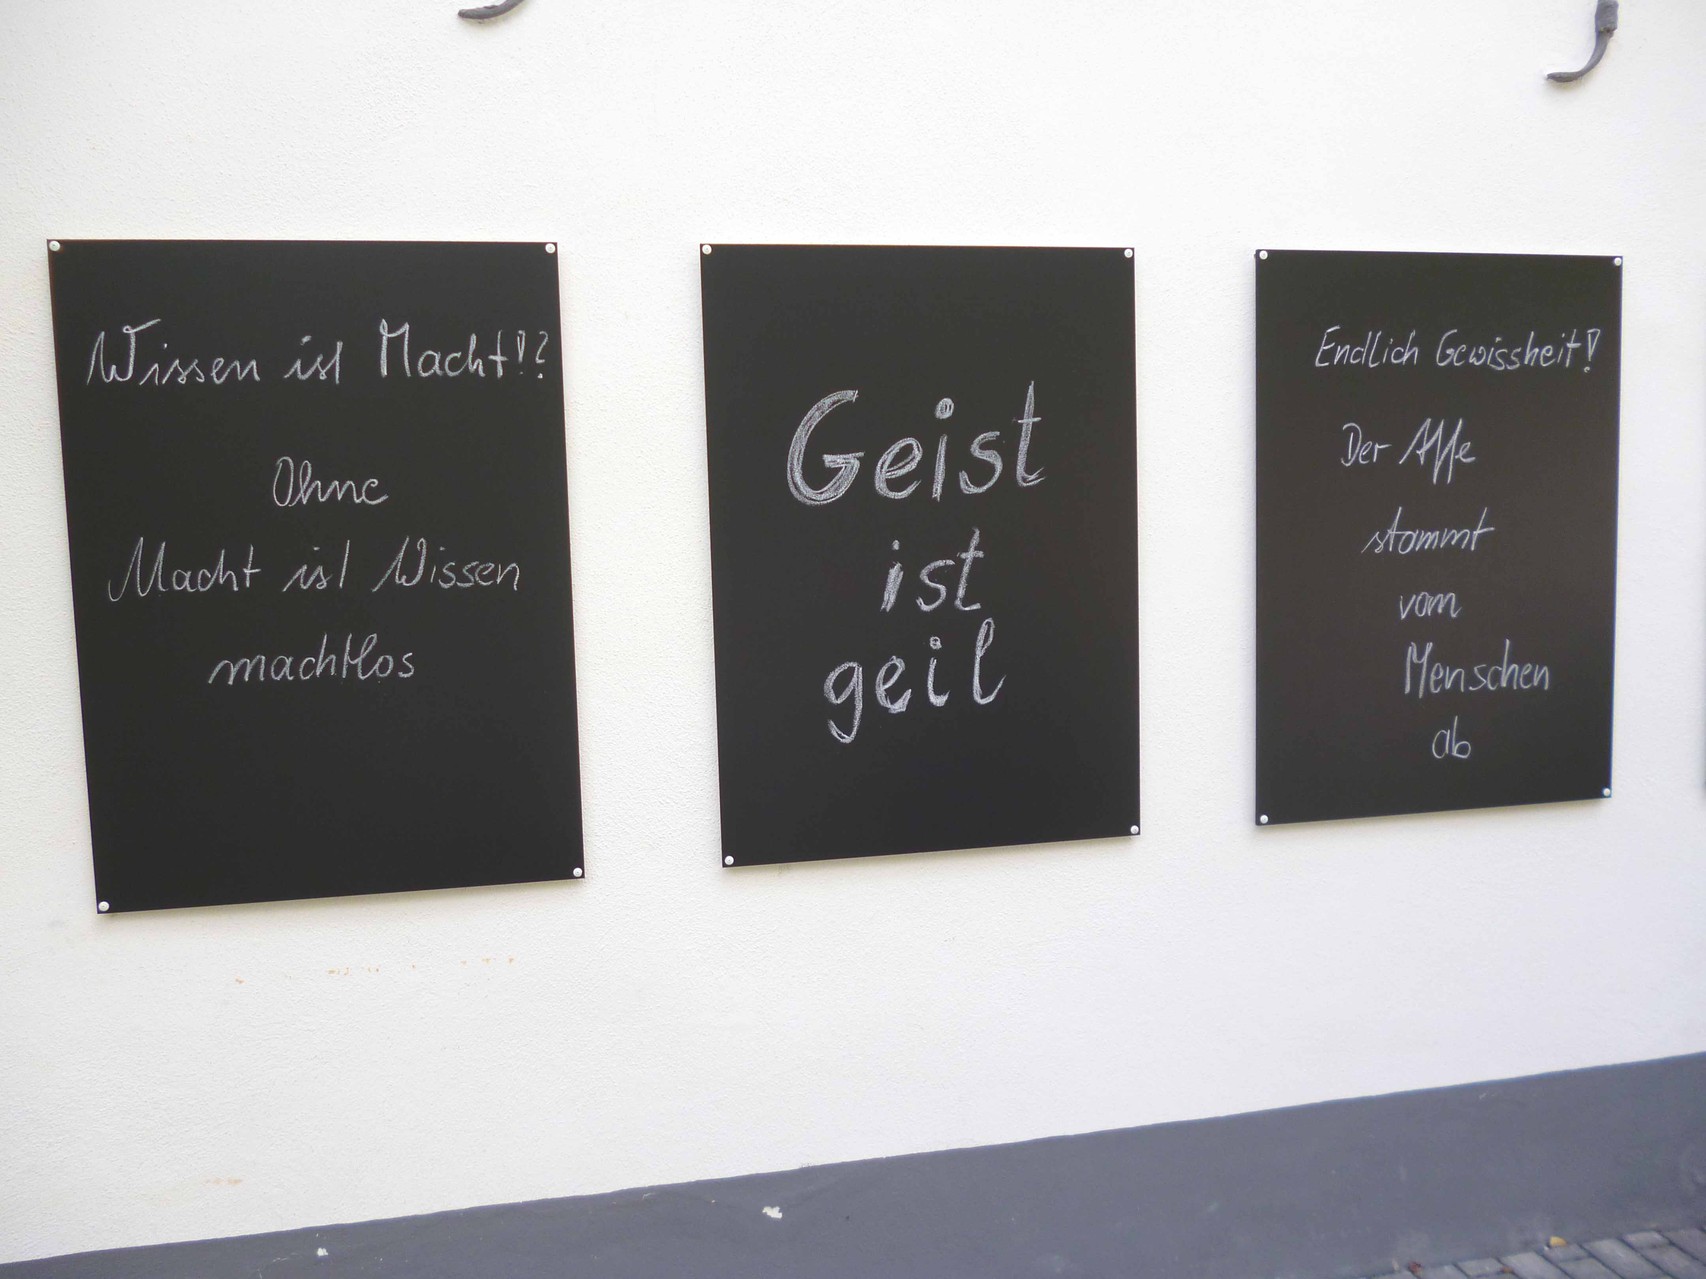 Wissen ist Macht!?
Ohne
Macht ist Wissen
machtlos
Geist
ist
geil
Endlich Gewissheit!
Der Affe
stammt
vom
Menschen
ab